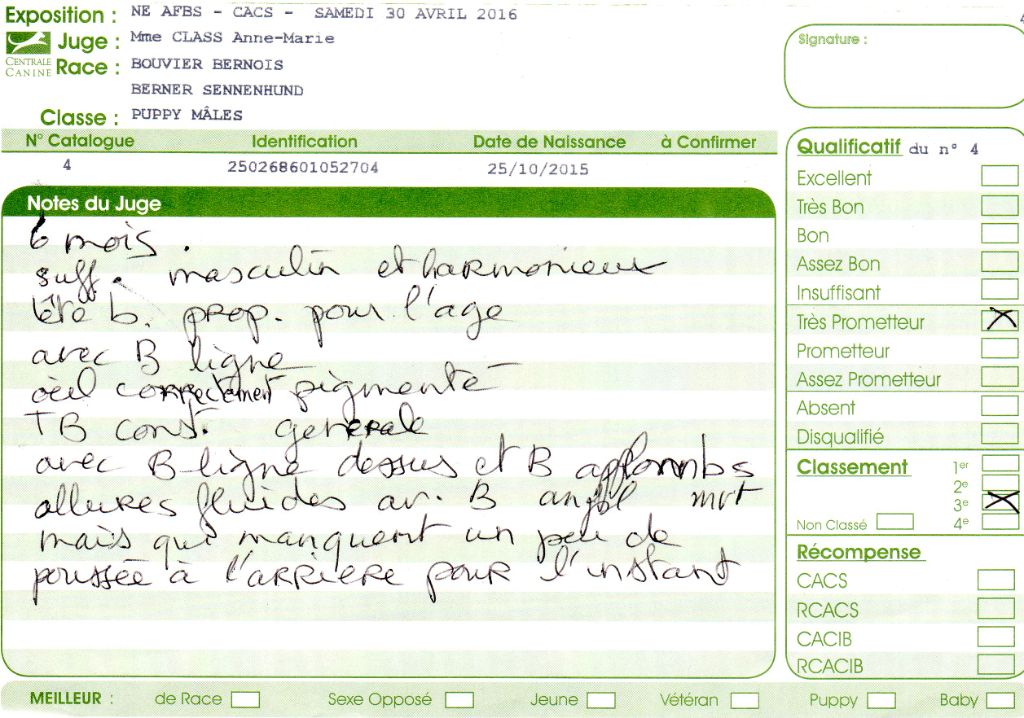 Exposition : NE AFBS - CACS - SAMEDI 30 AVRIL 2016
CENTRALE CANINE
Juge : Mme CLASS Anne-Marie
Race : BOUVIER BERNOIS
BERNER SENNENHUND
Classe : PUPPY MÂLES
N° Catalogue Identification Date de Naissance à Confirmer
4 250268601052704 25/10/2015
Notes du Juge
6 mois.
suff. masculin et harmonieux
tête b. prop. pour l'age
avec B ligne
oeil correctement pigmenté
TB const. generale
avec B ligne dessus et B aplombs
allures fluides av. B angul mvt
mais qui manquent un peu de
poussée à l'arrière pour l'instant
Signature :
Qualificatif du n° 4
Excellent
Très Bon
Bon
Assez Bon
Insuffisant
Très Prometteur X
Prometteur
Assez Prometteur
Absent
Disqualifié
Classement 1er
2e
3e X
Non Classé 4e
Récompense
CACS
RCACS
CACIB
RCACIB
MEILLEUR : de Race Sexe Opposé Jeune Vétéran Puppy Baby